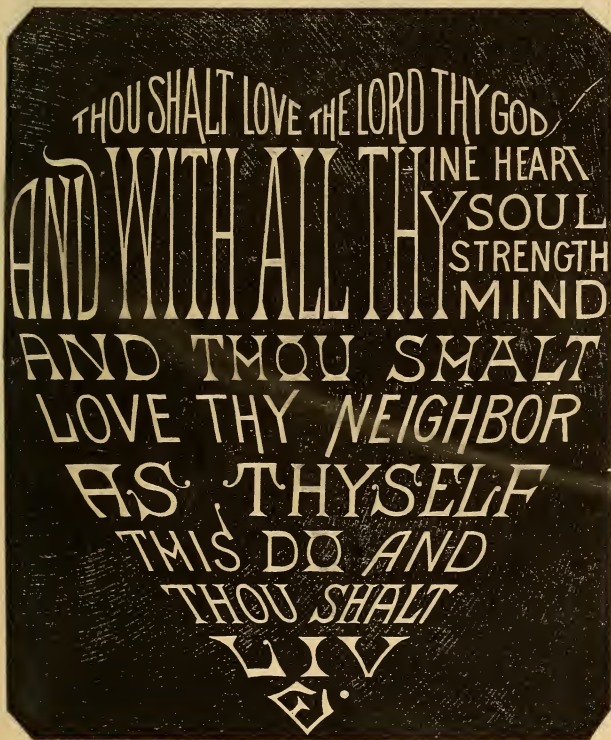 THOU SHALT LOVE THE LORD THY GOD,
AND WITH ALL THINE HEART
Y SOUL
STRENGTH
MIND
AND THOU SHALT
LOVE THY NEIGHBOR
AS THYSELF
THIS DO AND
THOU SHALT
LIV
E.